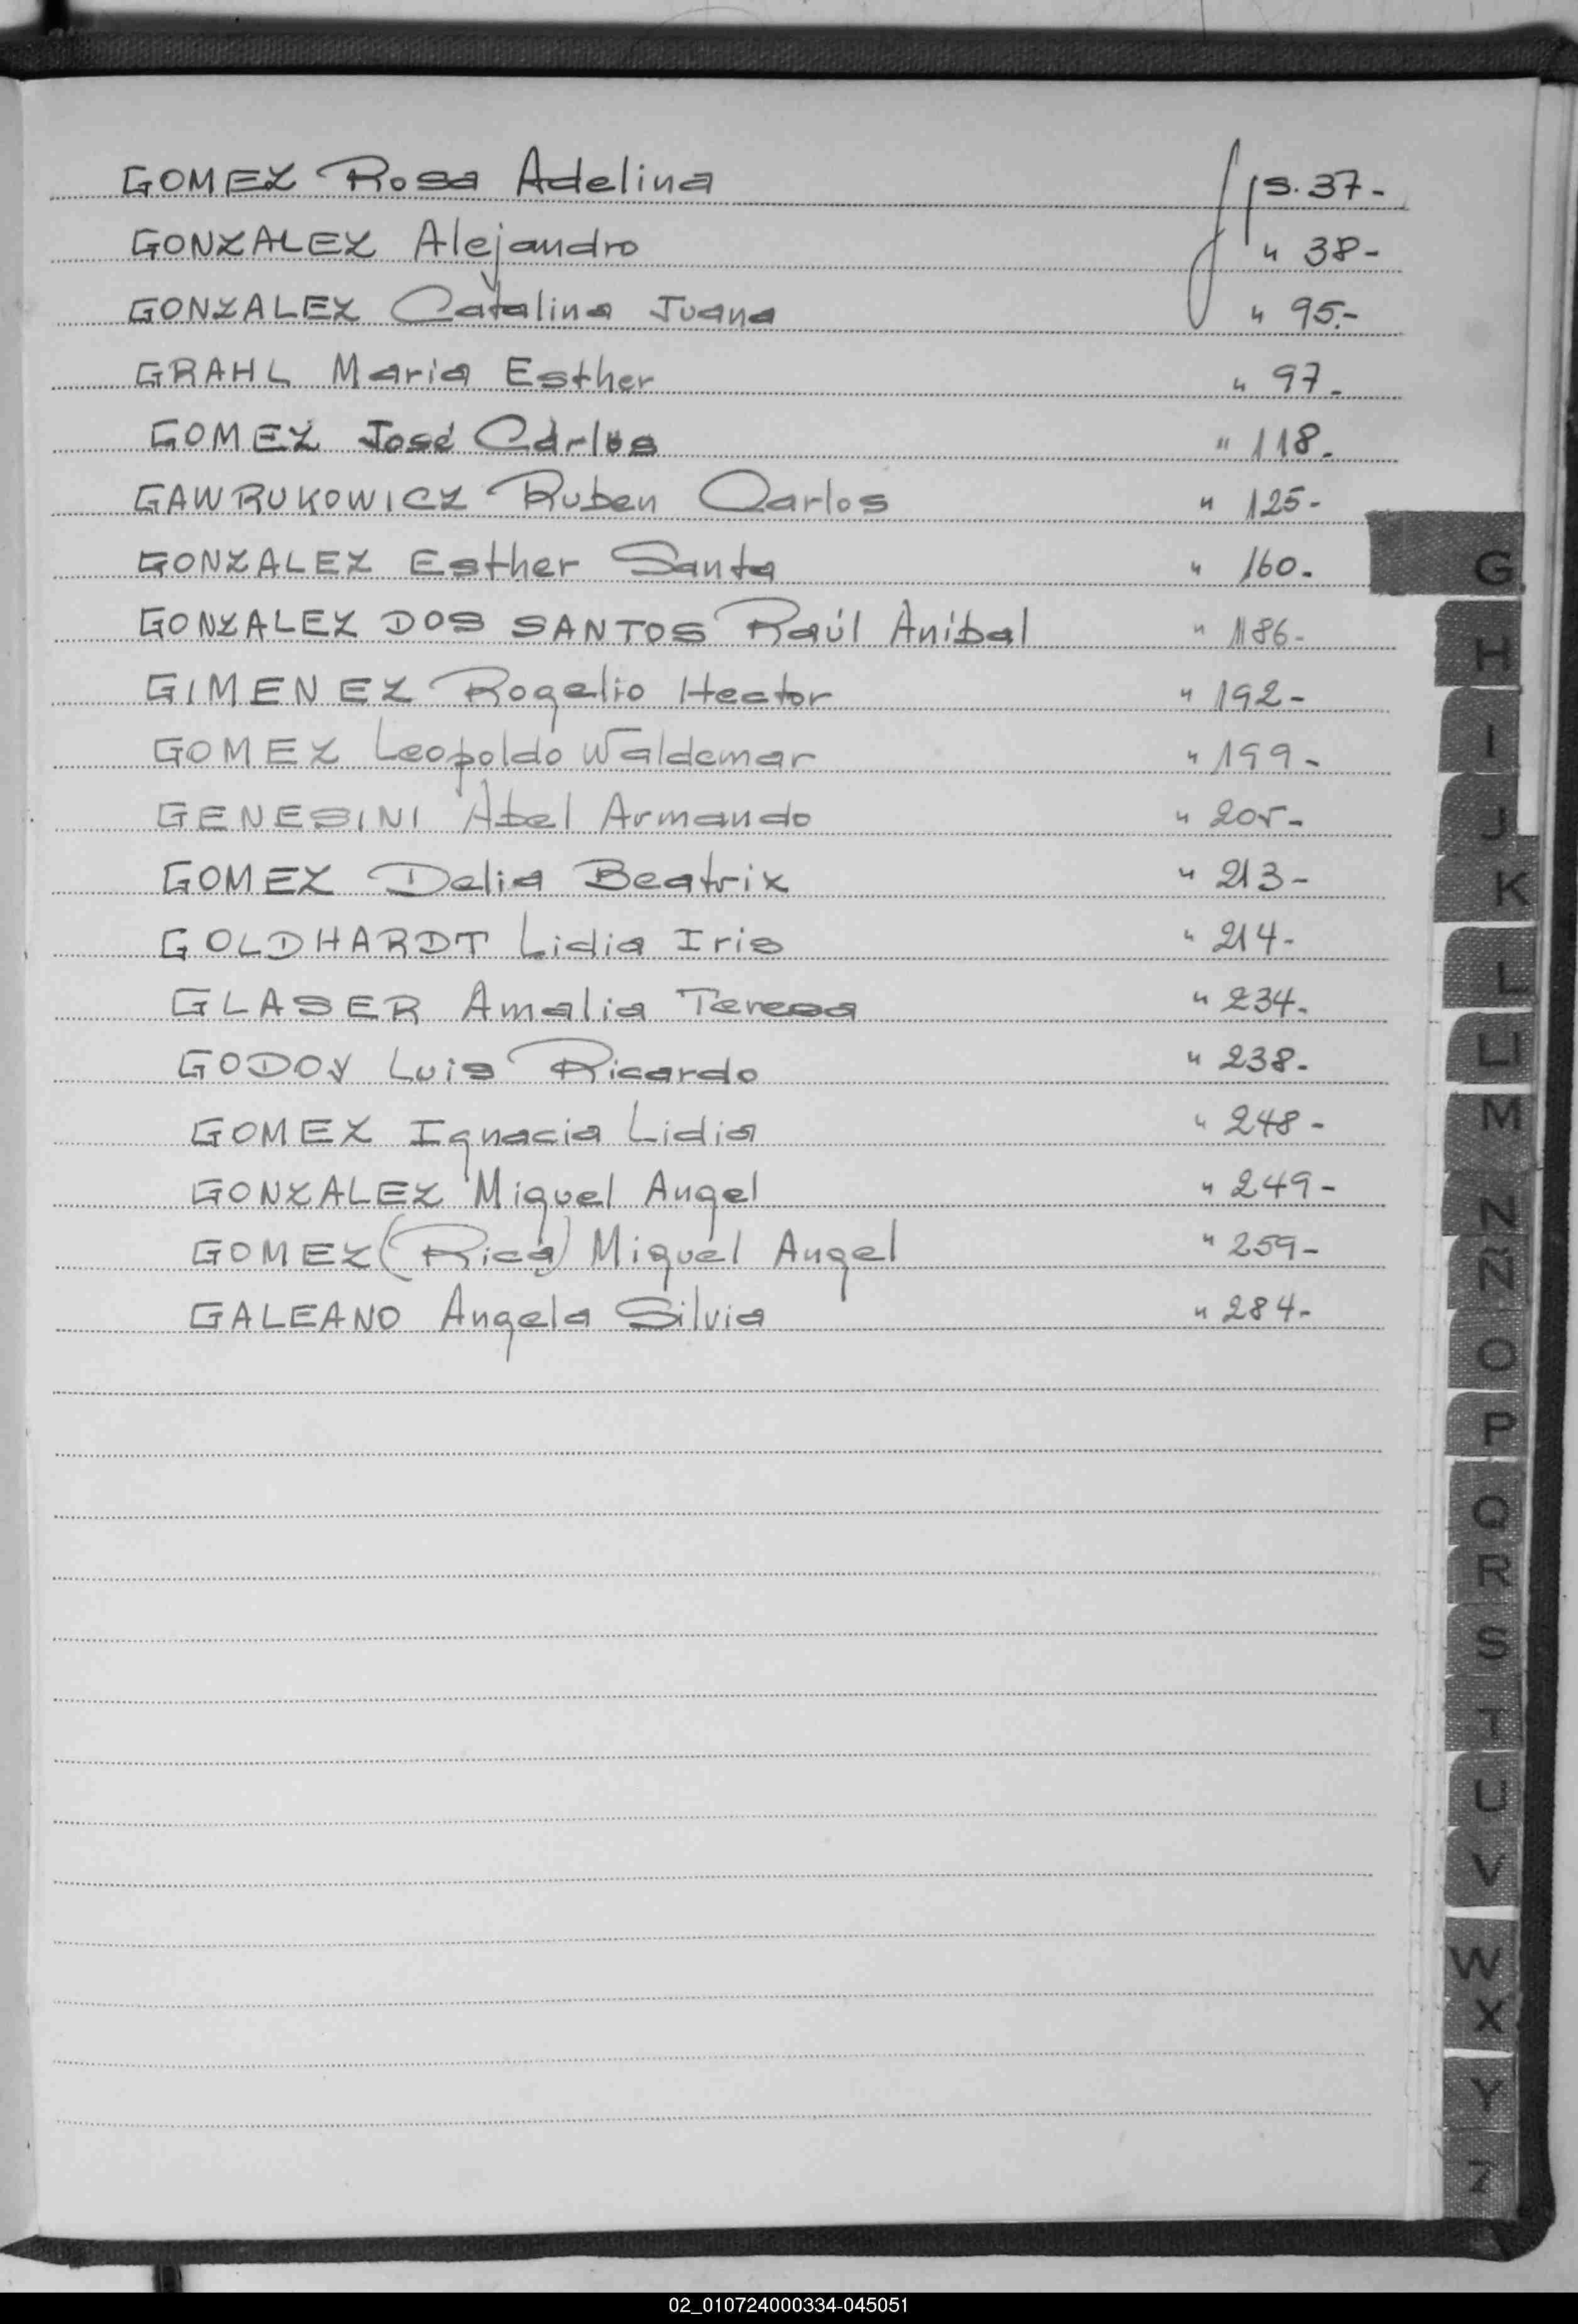 GOMEZ Rosa Adelina fjs. 37-
GONZALEZ Alejandro " 38-
GONZALEZ Catalina Juana " 95.-
GRAHL Maria Esther " 97-
GOMEZ José Carlos " 118-
GAWRUKOWICZ Ruben Carlos " 125-
GONZALEZ Esther Santa " 160-
GONZALEZ DOS SANTOS Raúl Anibal " 186-
GIMENEZ Rogelio Hector " 192-
GOMEZ Leopoldo Waldemar " 199-
GENESINI Abel Armando " 205-
GOMEZ Delia Beatrix " 213-
GOLDHARDT Lidia Iris " 214-
GLASER Amalia Teresa " 234-
GODOY Luis Ricardo " 238-
GOMEZ Ignacia Lidia " 248-
GONZALEZ Miguel Angel " 249-
GOMEZ (Rica) Miguel Angel " 259-
GALEANO Angela Silvia " 284-
G
H
I
J
K
L
Ll
M
N
Ñ
O
P
Q
R
S
T
U
V
W
X
Y
Z
02_010724000334-045051